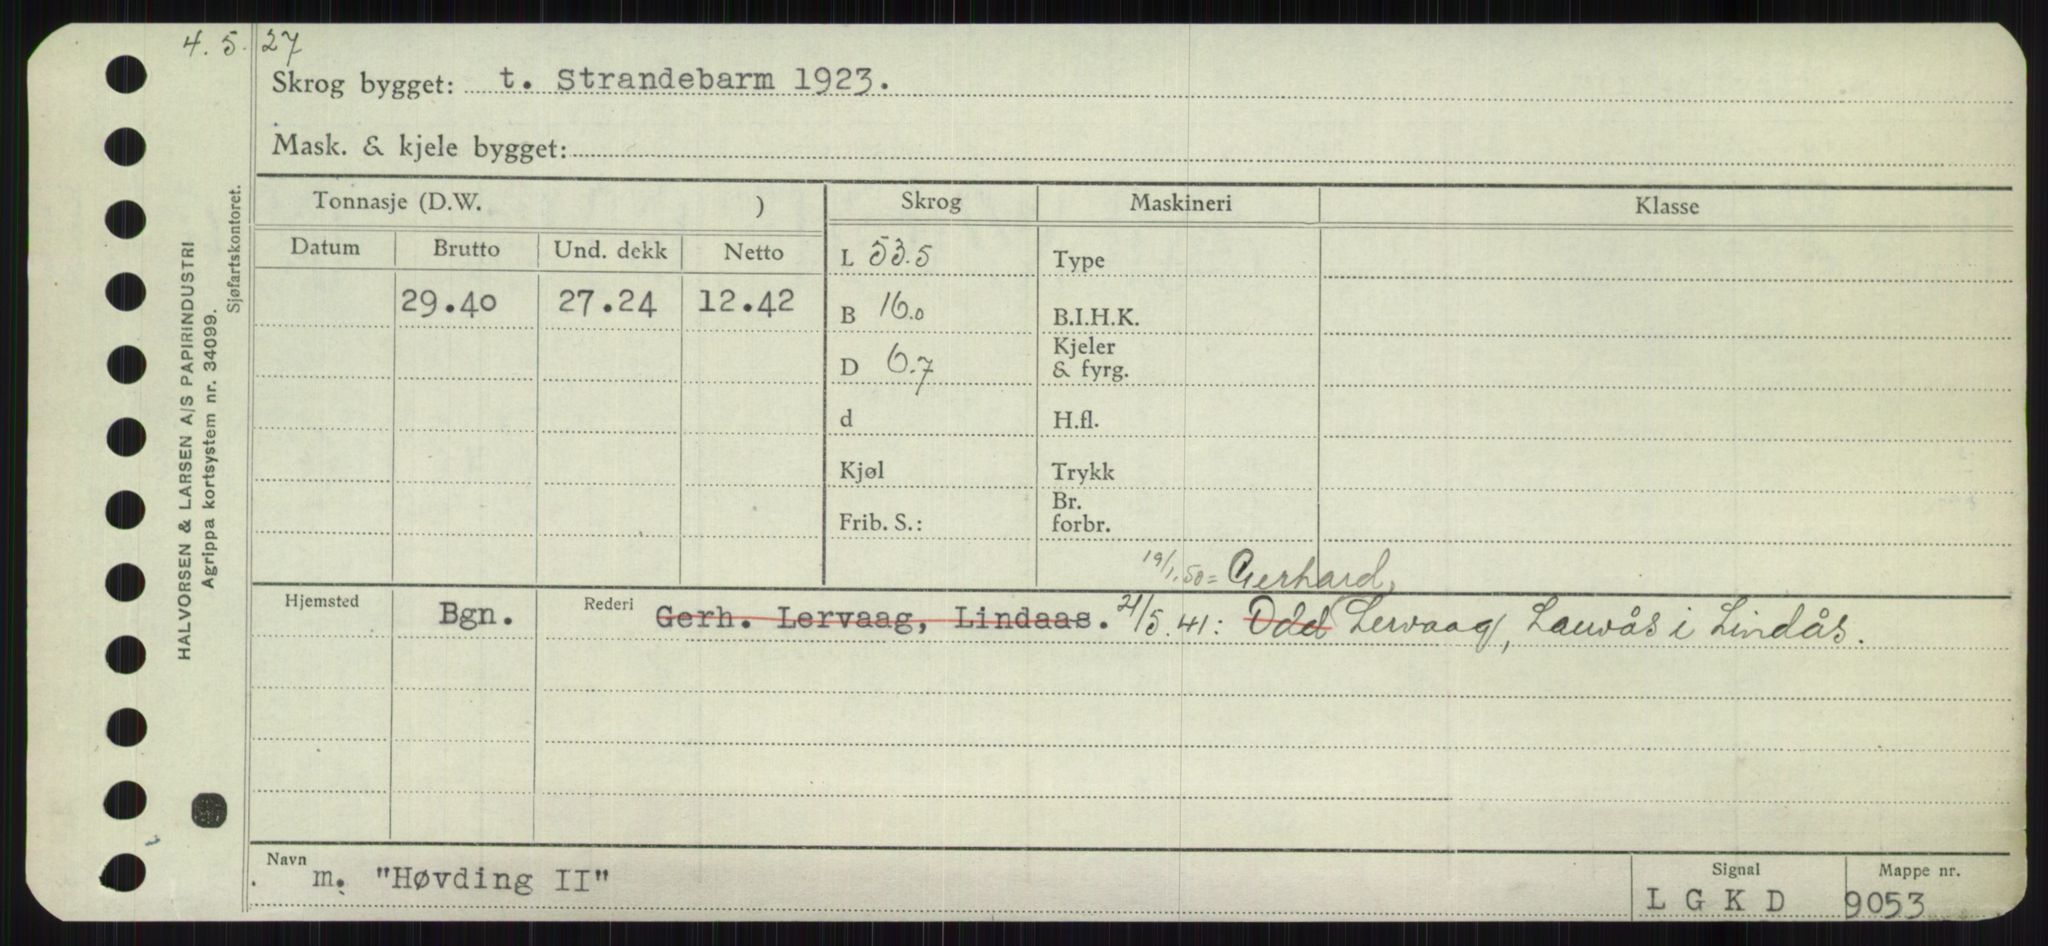 4. 5. 27
Skrog bygget: t. Strandebarm 1923.
Mask. & kjele bygget:
Tonnasje (D.W. )
Skrog
Maskineri
Klasse
Datum
Brutto
Und. dekk
Netto
L 53.5
Type
29.40
27.24
12.42
B 16.0
B.I.H.K.
D 6.7
Kjeler
& fyrg.
d
H.fl.
Kjøl
Trykk
Frib. S.:
Br.
forbr.
19/1.50= Gerhard,
Hjemsted
Bgn.
Rederi
Gerh. Lervaag, Lindaas. 21/5.41: Odd Lervaag, Lauvås i Lindås.
Navn
m. "Høvding II"
Signal
L G K D
Mappe nr.
9053
HALVORSEN & LARSEN A/S PAPIRINDUSTRI
Agrippa kortsystem nr. 34099.
Sjøfartskontoret.